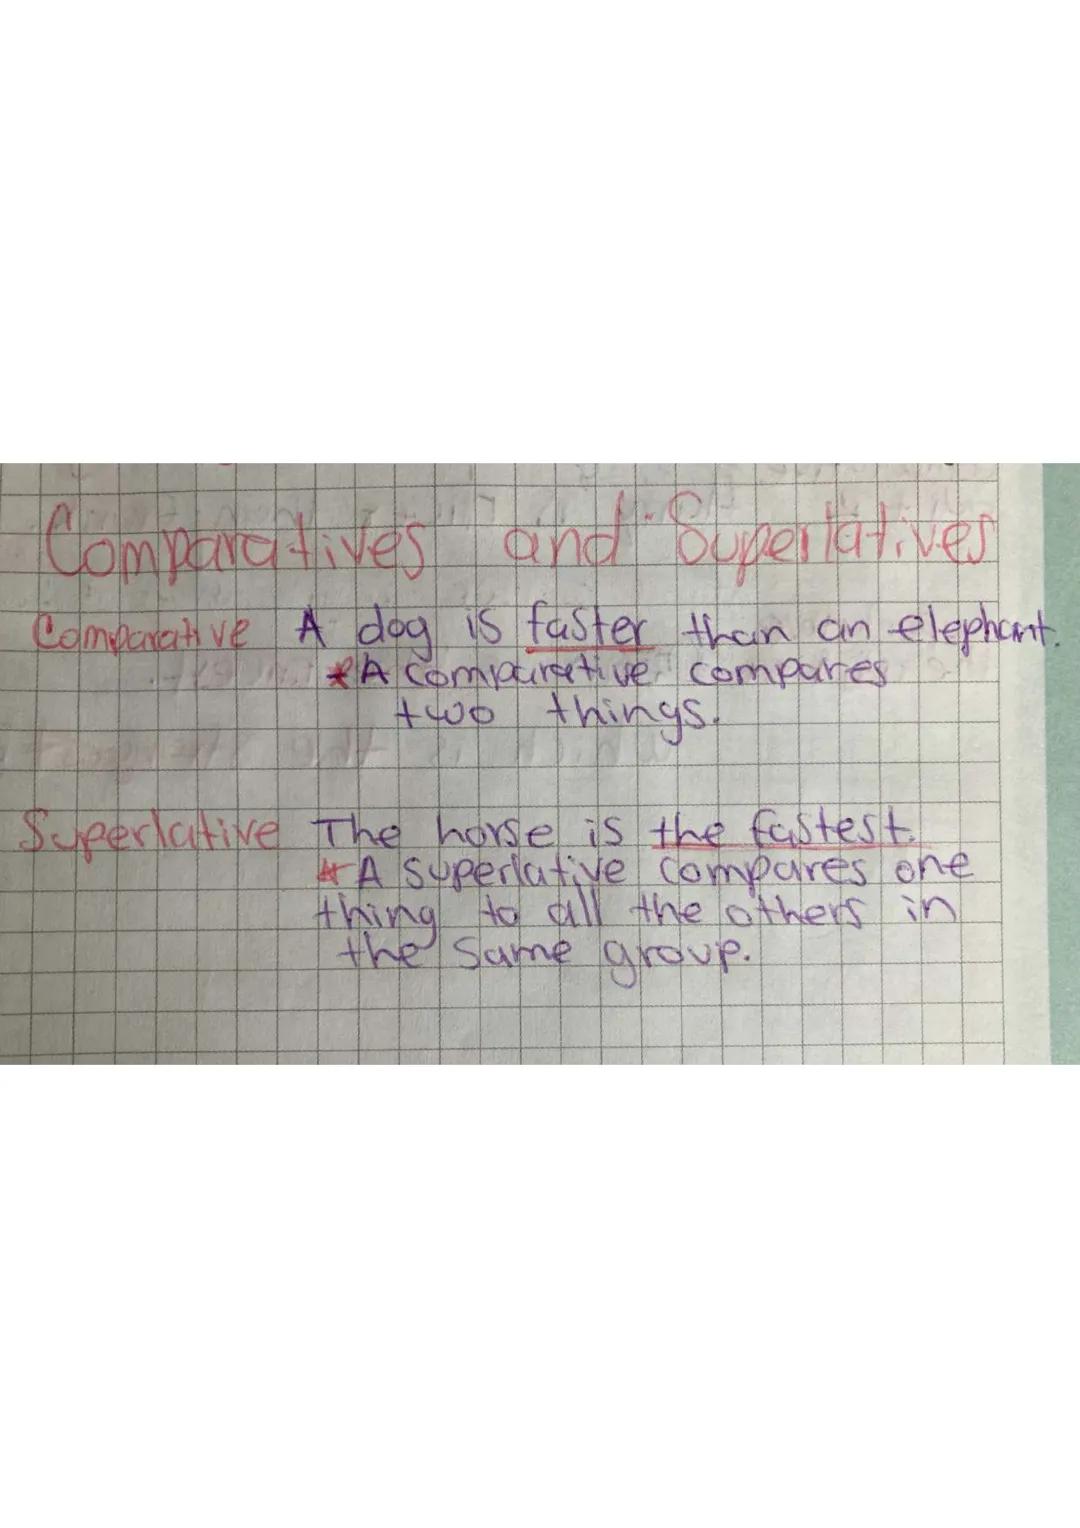 Comparatives and Superlatives
Comparative A dog is faster than an elephant.
*A comparative compares
two things.
Superlative The horse is the fastest.
*A superlative compares one
thing to all the others in
the same group.